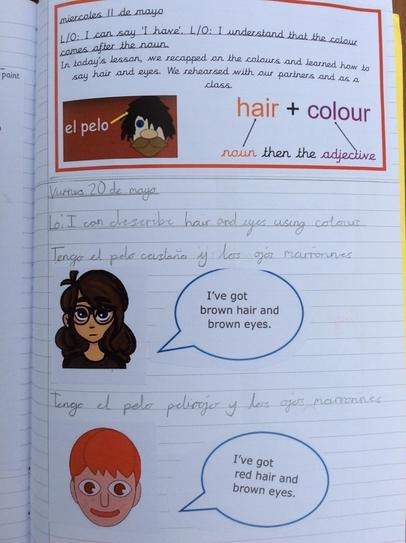 paint
miercoles 11 de mayo
L/O: I can say 'I have'. L/O: I understand that the colour
comes after the noun.
In today's lesson, we recapped on the colours and learned how to
say hair and eyes. We rehearsed with our partners and as a
class.
el pelo
hair + colour
noun then the adjective
Viernes 20 de mayo
Lo: I can describe hair and eyes using colour
Tengo el pelo castaño y los ojos marronnes
I've got
brown hair and
brown eyes.
Tengo el pelo pelirojo y los ojos marronnes
I've got
red hair and
brown eyes.